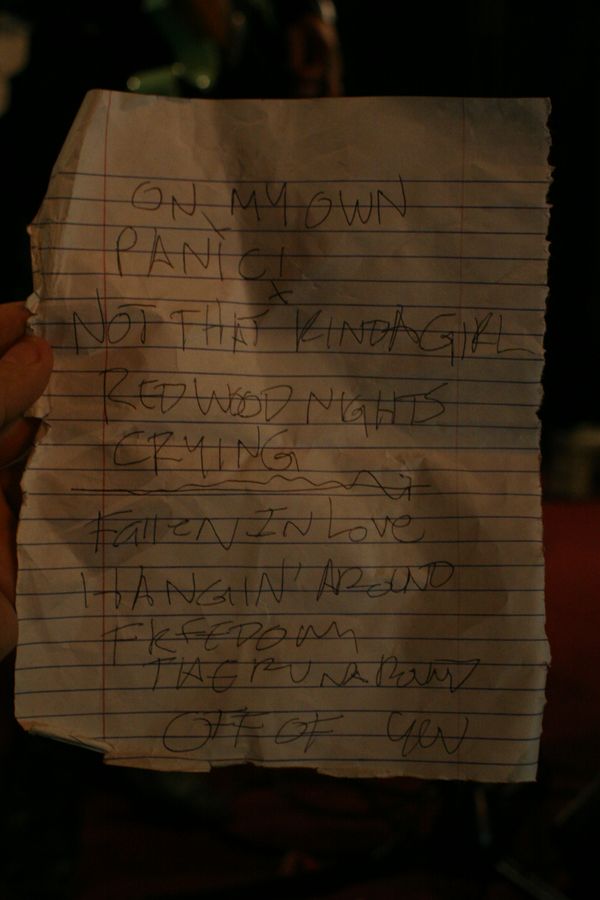 ON MY OWN
PANIC!
NOT THAT KINDA GIRL
REDWOOD NIGHTS
CRYING
FallEN IN LOVE
HANGIN' AROUND
FREEDOM
THE RUNAROUND
OFF OF YOU